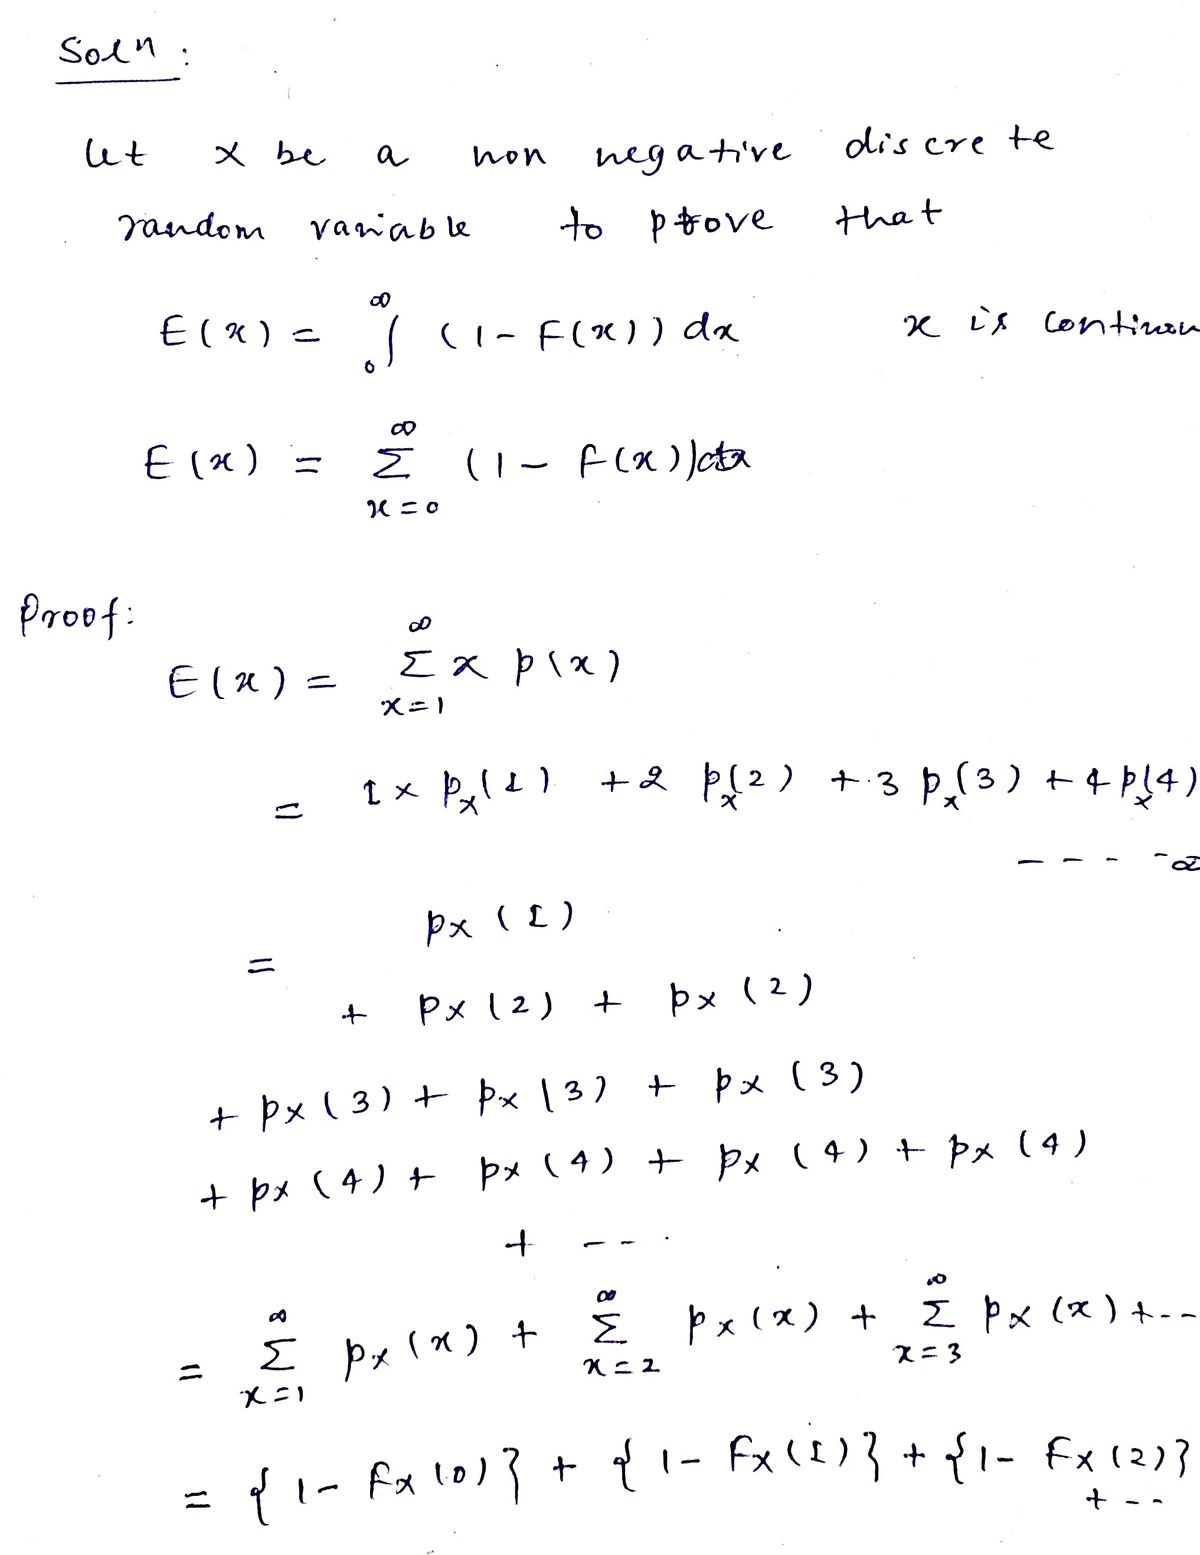 Soln :
let x be a non negative discrete
random variable to prove that
E(x) = ∫₀^∞ (1 - F(x)) dx x is continuou
E(x) = ∞ Σ x=0 (1 - F(x))
Proof:
E(x) = ∞ Σ x=1 x p(x)
= 1 × p_x(1) + 2 p_x(2) + 3 p_x(3) + 4 p_x(4)
- - - - ∞
= px (1)
+ px (2) + px (2)
+ px (3) + px (3) + px (3)
+ px (4) + px (4) + px (4) + px (4)
+ - - .
= ∞ Σ x=1 px (x) + ∞ Σ x=2 px (x) + ∞ Σ x=3 px (x) + - -
= { 1 - Fx (0) } + { 1 - Fx (1) } + { 1 - Fx (2) }
+ - -